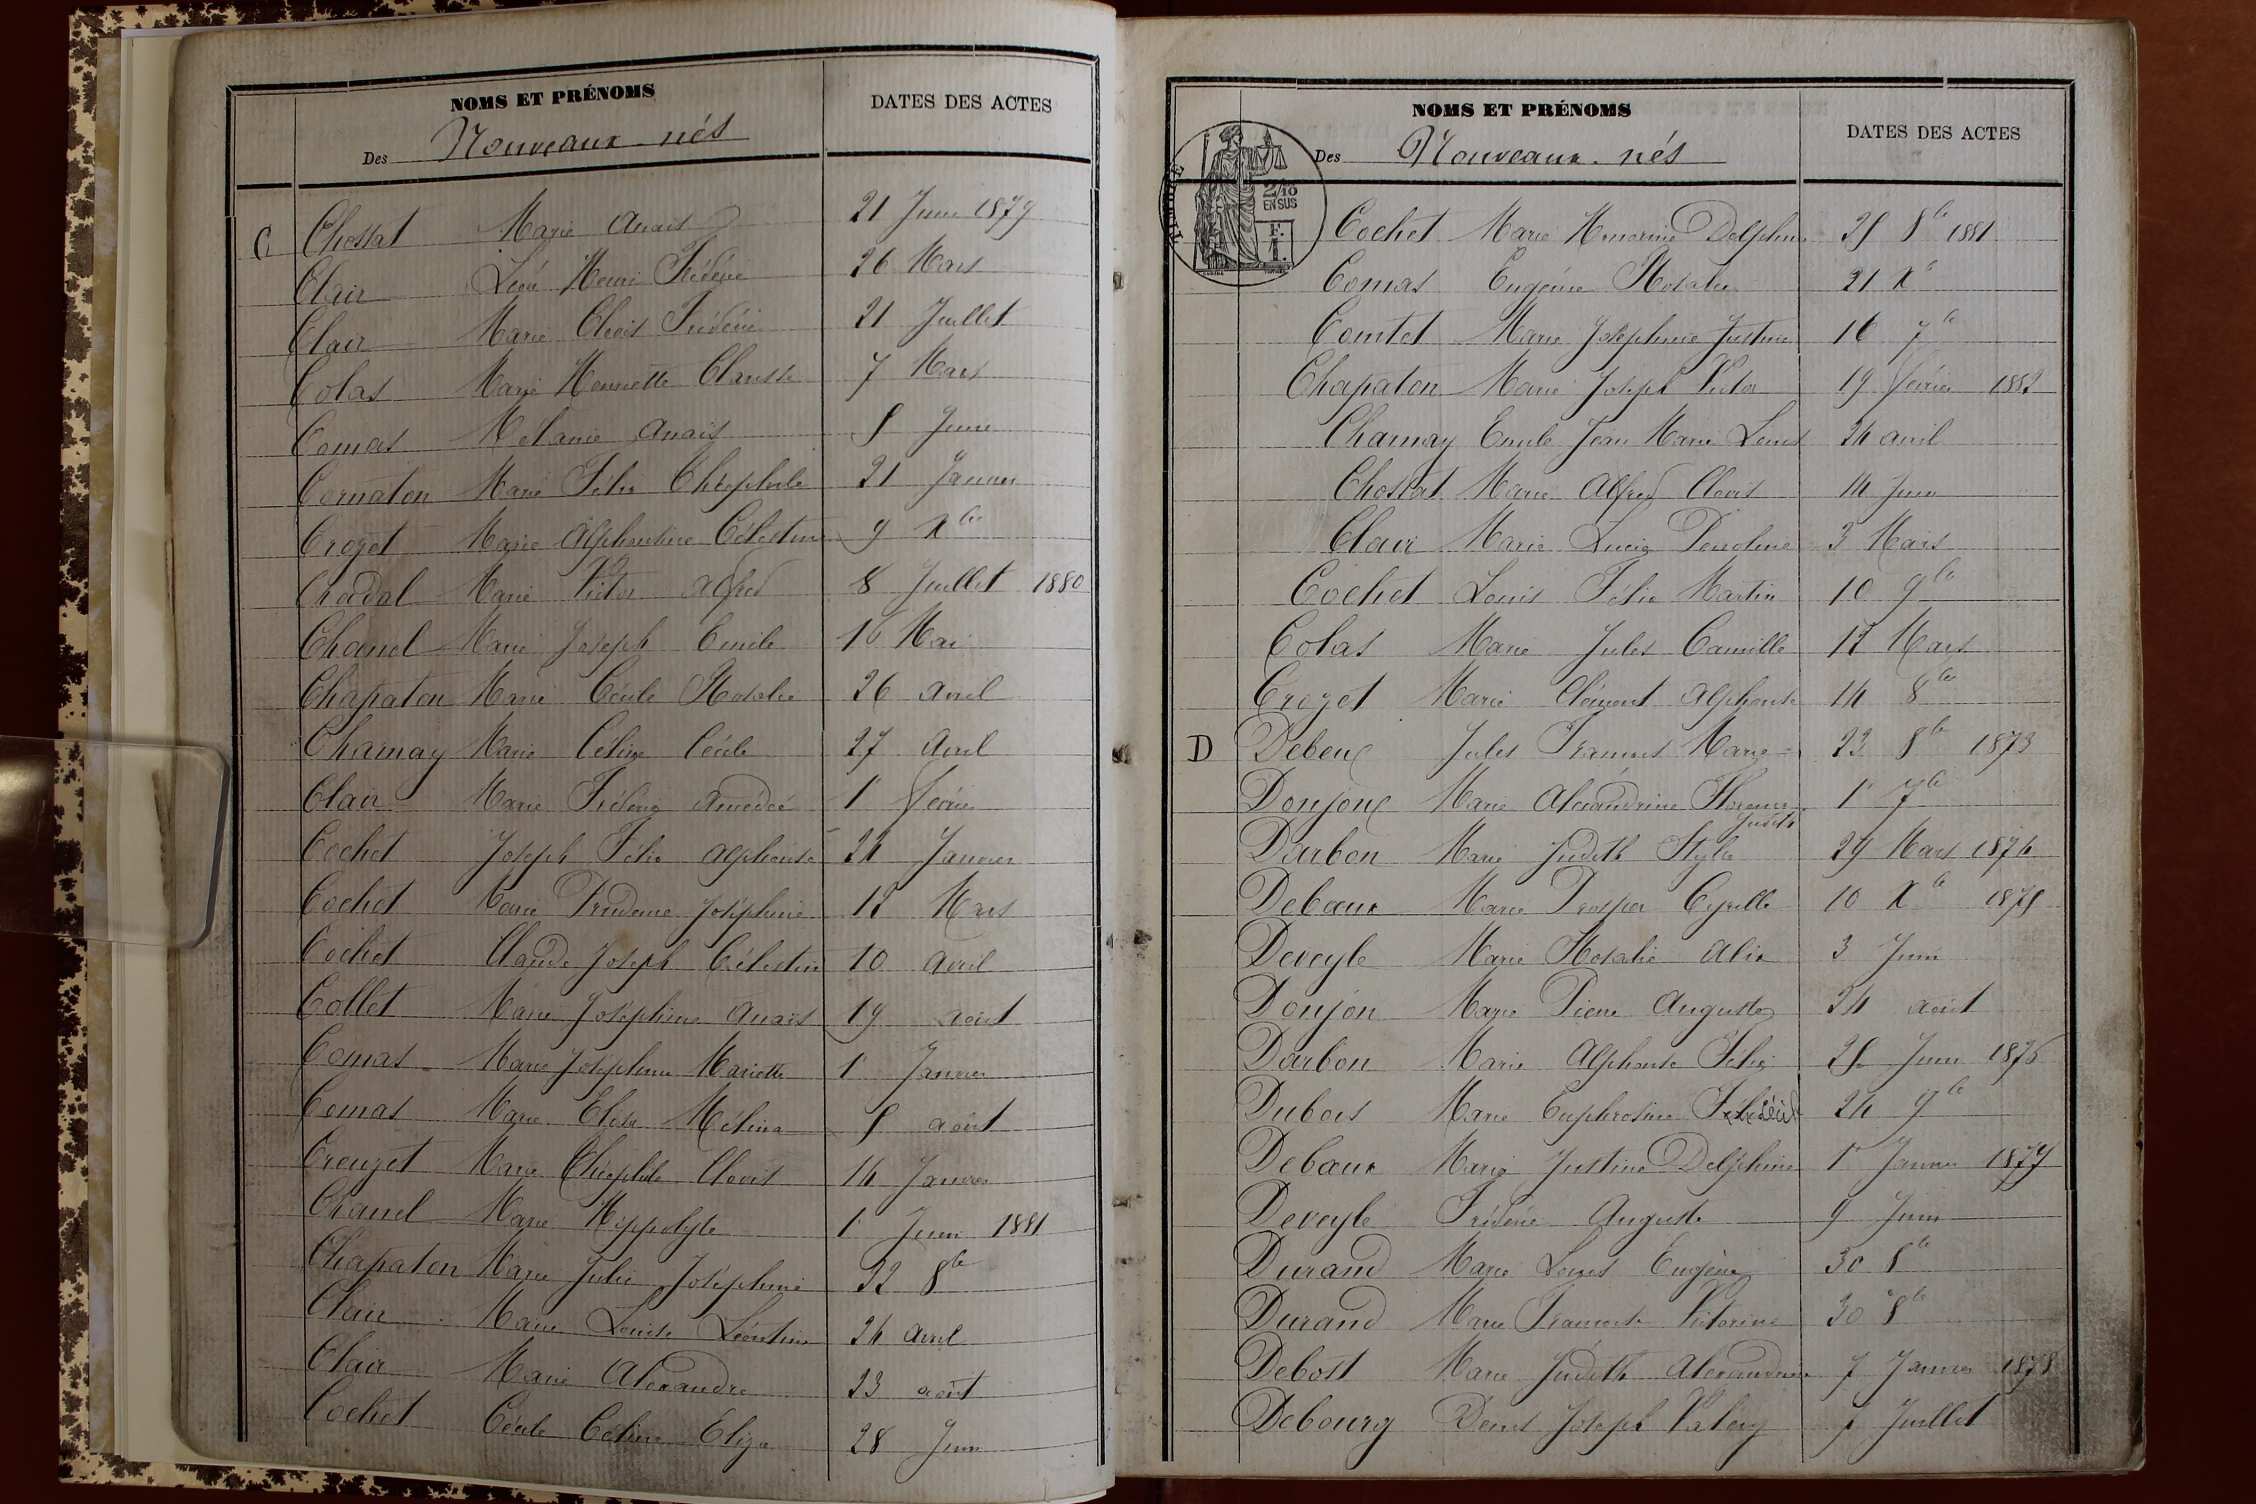 NOMS ET PRÉNOMS
DATES DES ACTES
Des Nouveaux-nés
C Chossat Marie Anais 21 Juin 1879
Clair Léon Henri Frédéric 26 Mars
Clair Marie Clovis Frédéric 21 Juillet
Colas Marie Henriette Clarisse 7 Mars
Comas Mélanie Anaïs 8 Juin
Cornaton Marie Félix Théophile 21 Janvier
Crozet Marie Alphonsine Célestine 9 Xbre
Chadal Marie Victor Alfred 8 Juillet 1880
Chanel Marie Joseph Emile 16 Mai
Chapaton Marie Cécile Rosalie 26 Avril
Charnay Marie Céline Cécile 27 Avril
Clair Marie Frédéric Amédée 1r Février
Cochet Joseph Félix Alphonse 24 Janvier
Cochet Marie Prudence Joséphine 12 Mars
Cochet Claude Joseph Célestin 10 Avril
Collet Marie Joséphine Anaïs 19 Août
Comas Marie Joséphine Mariette 1r Janvier
Comas Marie Elisa Mélina 8 août
Creuzet Marie Théophile Clovis 14 Janvier
Chanel Marie Hippolyte 1r Juin 1881
Chapaton Marie Julie Joséphine 22 8bre
Clair Marie Louise Léontine 24 Avril
Clair Marie Alexandre 23 août
Cochet Cécile Céline Éliza 28 Juin
NOMS ET PRÉNOMS
DATES DES ACTES
Des Nouveaux-nés
TIMBRE
2/10
EN SUS
F.
1.
Cochet Marie Honorine Delphine 25 8bre 1881
Comas Eugénie Rosalie 21 Xbre
Comtet Marie Joséphine Justine 16 7bre
Chapaton Marie Joseph Victor 19 Février 1882
Charnay Emile Jean Marie Louis 24 avril
Chossat Marie Alfred Clovis 14 Juin
Clair Marie Lucie 3 Mars
Cochet Louis Félix Martin 10 9bre
Colas Marie Jules Camille 12 Mars
Crozet Marie Clément Alphonse 14 8bre
D Debeuf Jules François Marie 23 8bre 1873
Donjoux Marie Alexandrine Florence 1r 7bre
Judith
Darbon Marie Judith 29 Mars 1874
Debaux Marie Prosper Cyrille 10 Xbre 1875
Deveyle Marie Rosalie Alix 3 Juin
Donjon Marie Pierre Auguste 24 août
Darbon Marie Alphonse Félix 25 Juin 1876
Dubois Marie Euphrosine 24 9bre
Debaux Marie Justine Delphine 1r Janvier 1877
Deveyle Frédéric Auguste 9 Juin
Durand Marie Louis Eugène 30 8bre
Durand Marie Françoise Victorine 30 8bre
Debost Marie Judith Alexandrine 7 Janvier 1878
Debourg Denis Joseph Valéry 7 Juillet